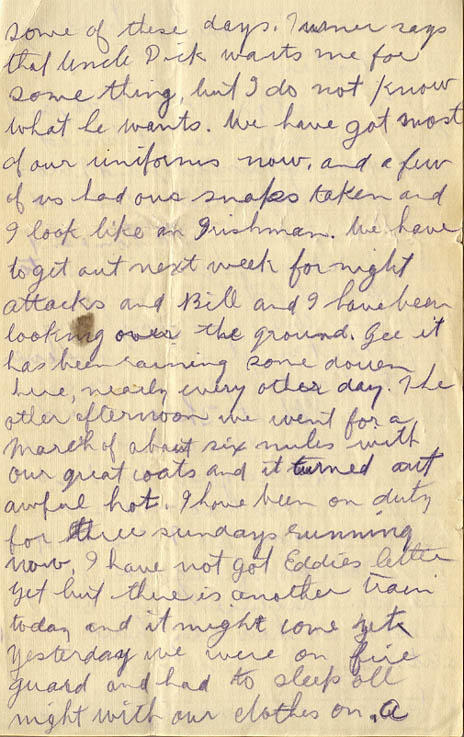 some of these days. Turner says
that Uncle Dick wants me for
some thing, but I do not know
what he wants. We have got most
of our uniforms now, and a few
of us had our snaps taken and
I look like an Irishman. We have
to get out next week for night
attacks and Bill and I have been
looking over the ground. Gee it
has been raining some down
here, nearly every other day. The
other afternoon we went for a
march of about six miles with
our great coats and it turned out
awful hot. I have been on duty
for three sundays running
now. I have not got Eddies letter
yet but there is another train
today and it might come yet
yesterday we were on fire
guard and had to sleep all
night with our clothes on. A